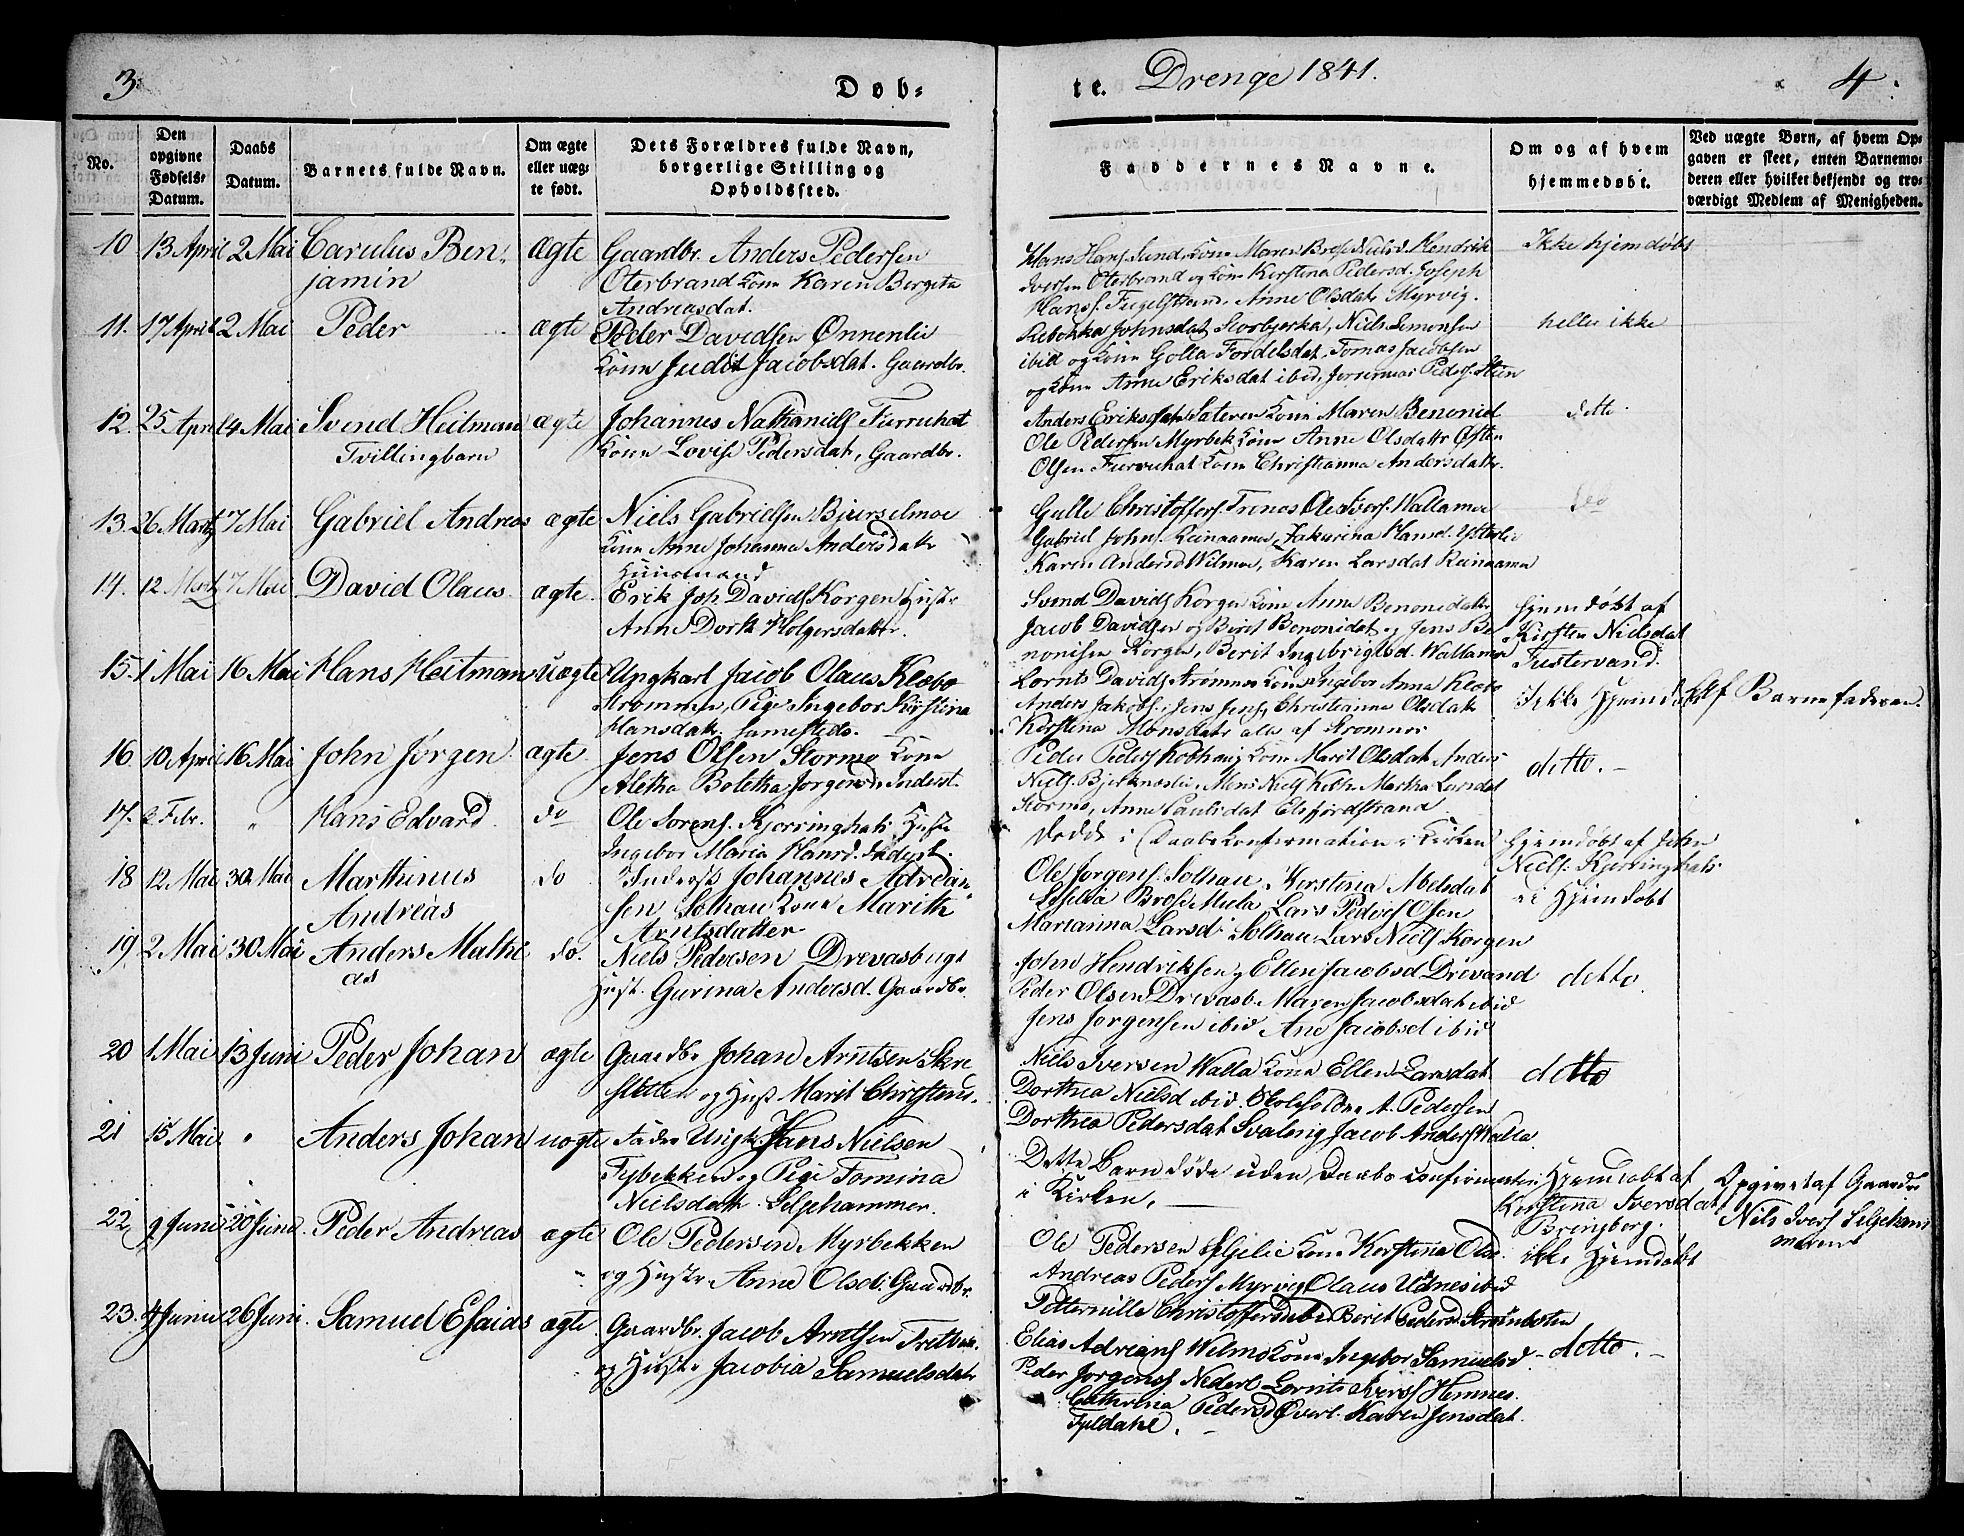 3.
Døb-
te. Drenge 1841.
4.
No.
Den opgivne Fødsels-Datum.
Daabs Datum.
Barnets fulde Navn.
Om ægte eller uæg-te født.
Dets Forældres fulde Navn, borgerlige Stilling og Opholdssted.
Faddernes Navne.
Om og af hvem hjemmedøbt.
Ved uægte Børn, af hvem Op-gaven er skeet, enten Barnemo-deren eller hvilket bekjendt og tro-værdigt Medlem af Menigheden.
10 13 April 2 Mai Carulus Ben-
jamin
Ægte
Gaardbr. Anders Pedersen
Oterbrand Kone Karen Bergeta
Andreasdat.
Hans Hans. Sund, Kone Maren Hendrik
Iversen Oterbrand og Kone Kerstina Pedersd. Joseph
Hans. Anne Olsdatr Myrvig.
Ikke hjemdøbt
11. 17 April 2 Mai Peder
ægte
Peder Davidsen Ønnenlie
Kone Judit Jacobsdat. Gaardbr.
Rebekka Johnsdat Storbjerka, Niels Simonsen
ibid og Kone Golla Fordelsdat, Tomas Jacobsen
og Kone Anne Eriksdat ibid, Peders.
heller ikke
12. 25 April 4 Mai Svend Heitman
Tvillingbarn
ægte
Johannes Nathaniels Furruhat
Kone Lovise Pedersdat, Gaardbr.
Anders Eriks Sateren Kone Maren Benonid
Ole Pedersen Myrbek Kone Anne Olsdattr Østen
Olsen Furruhat Kone Christianna Andersdattr.
detto.
13. 26 Martz 7 Mai Gabriel Andreas
ægte
Niels Gabrielsen Bjurselmoe
Kone Anne Johanna Andersdattr
Huusmand
Gulle Christoffers. Wallamoe
Gabriel Johns. Reinaamoe, Jakurina Hansd.
Karen Andersd Wilmoe, Karen Larsdat Reinaamoe
do
14. 12 Martz 7 Mai David Olaus.
ægte.
Erik Joh Davids Korgen Hustr
Anne Dorth Holgersdattr.
Svend Davids Korgen Kone Anne Benonidattr
Jacob Davidsen og Beret Benonidat og Jens Be-
nonisen Korgen, Berit Ingebrigtsd. Wallamoe
Hjemdøbt af
Kirsten Nielsdat
Fustervand.
15. 1 Mai 16 Mai Hans Heitman
uægte
Ungkarl Jacob Olaus Klæbo
Strommen, Pige Ingebor Kirstina
Hansdatr samesteds.
Lornts Davids Strømnes Kone Ingebor Anna Klæbo
Anders Jakobs, Jens Jens, Christianna Olsdatr
Kerstina Monsdatr alle af Stromnes
Ikke Hjemdøbt
Af Barnefaderen
16. 10 April 16 Mai John Jørgen.
ægte.
Jens Olsen Stormo Kone
Aletha Boletha Jorgensd. Inderst.
Peder Peders Kobhaug Kone Marit Olsdat Anders
Niels. Bjerknæslie, Mons Niels Martha Larsdat
Stormo, Anne Paulsdat Elsfjordstrand
ditto.
17. 2 Febr. " Hans Edvard.
do
Ole Sorens. Kjorringhals Hustr
Ingebor Maria Hansd. Indyst.
Døde i Daabs Konfirmation i Kirken
Hjemdøbt af John
Niels. Kjerringhals
18 12 Mai 30 Mai Marthinus
Andreas
do
Inderst Johannes Adrean-
sen Solhau Kone Marith
Arntsdatter
Ole Jorgens. Solhau, Kerstina Melsdat
Lars Peders Osen
Marianna Larsd. Solhau, Lars Niels Korgen
ei Hjemdøbt
19. 2 Mai 30 Mai Anders Mathi
as
do.
Niels Pedersen Drevasbugt
Hust. Gurina Andersd. Gaardbr.
John Hendriksen, Ellen Jacobsd Drevand
Peder Olsen Drevasb. Maren Jacobsdat ibid
Jens Jorgensen ibid Ane Jacobsd ibid
ditto.
20 1 Mai 13 Juni Peder Johan
ægte
Gaardbr Johan Arntsen Skre
sletten og Hust Marit Christens.
Niels Iversen Walla Kone Ellen Larsdat
Dorthea Nielsd ibid. Skoleholder A. Pedersen
Dorthea Pedersdat Svaleng Jacob Anders Walla
ditto
21 15 Mai " Anders Johan
uægte
Fader Ungk. Hans Nielsen
Fybekken og Pige Tomina
Nielsdatr Seljehammer.
Dette Barn døde uden Daabs Confirmation
i Kirken.
Hjemdøbt af
Kerstina Iversdat
Bringberg.
Opgivet af Gaardbr
Nils Ivers Seljeham
meren
22. 9 Juni 20 Juni. Peder Andreas
ægte
Ole Pedersen Myrbekken
og Hustr Anne Olsd. Gaardbr.
Ole Pedersen Kone Kerstina Olsd.
Andreas Peders Myrvig Olaus Udnes ibid
Petternille Christoffersd ibid Berit Pedersd Strømboten
ikke Hjemdøbt
23. 4 Juni 26 Juni. Samuel Esaias
ægte
Gaardbr. Jacob Arntsen
og Hustr Jacobia Samuelsdatr
Elias Adrians Welmo Kone Ingebor Samuelsd.
Peder Jorgens Nederl Lornts Ivers Hemnes.
Cathrina Pedersd Øverl. Karen Jensdat.
Fyldahl.
ditto.